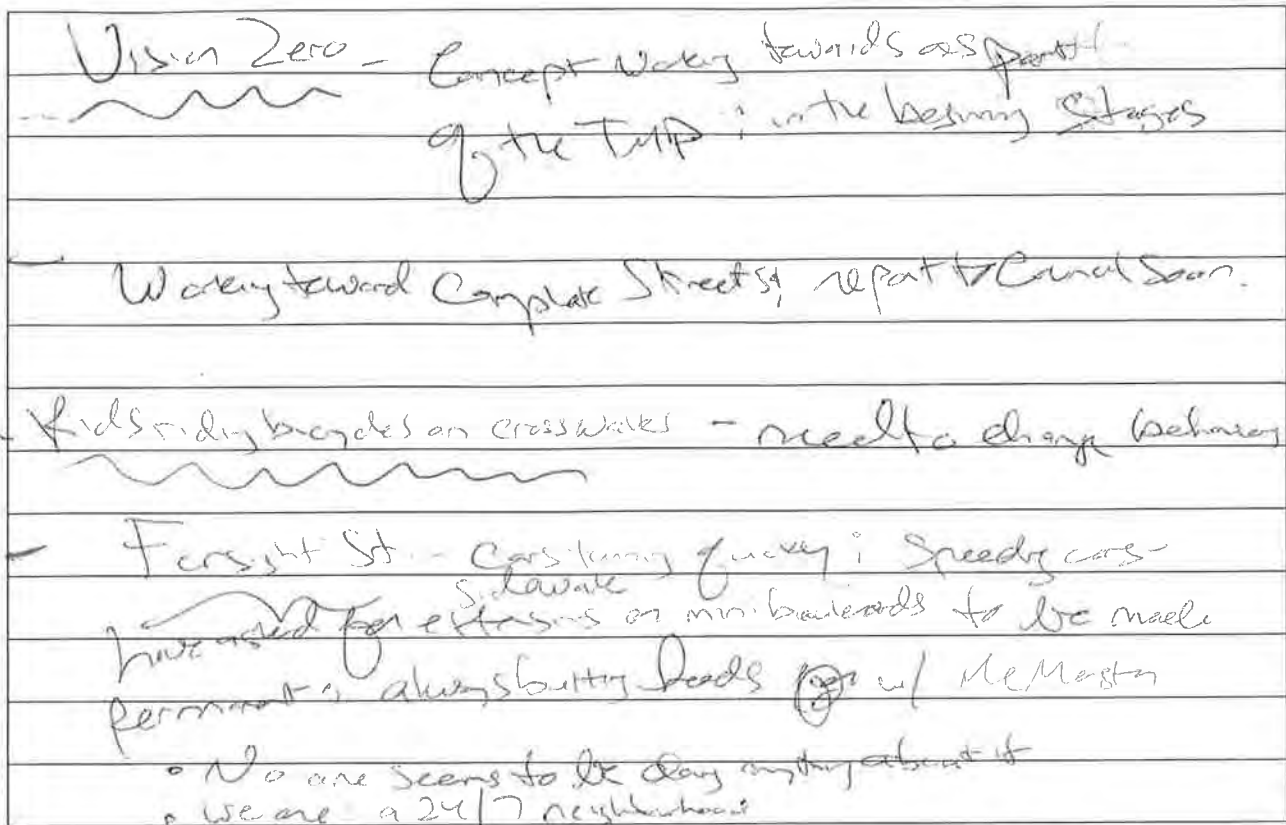 Vision Zero - Concept working towards as part
of the TMP ; in the beginning stages
- Working toward Complete Streets; report to Council soon.
- Kids riding bicycles on crosswalks - need to change behaviour
- Forsyth St. - Cars turning quickly ; speeding cars -
sidewalk
have asked for extensions on mini boulevards to be made
permanent ; always butting heads w/ McMaster
• No one seems to be doing anything about it
• we are a 24/7 neighbourhood